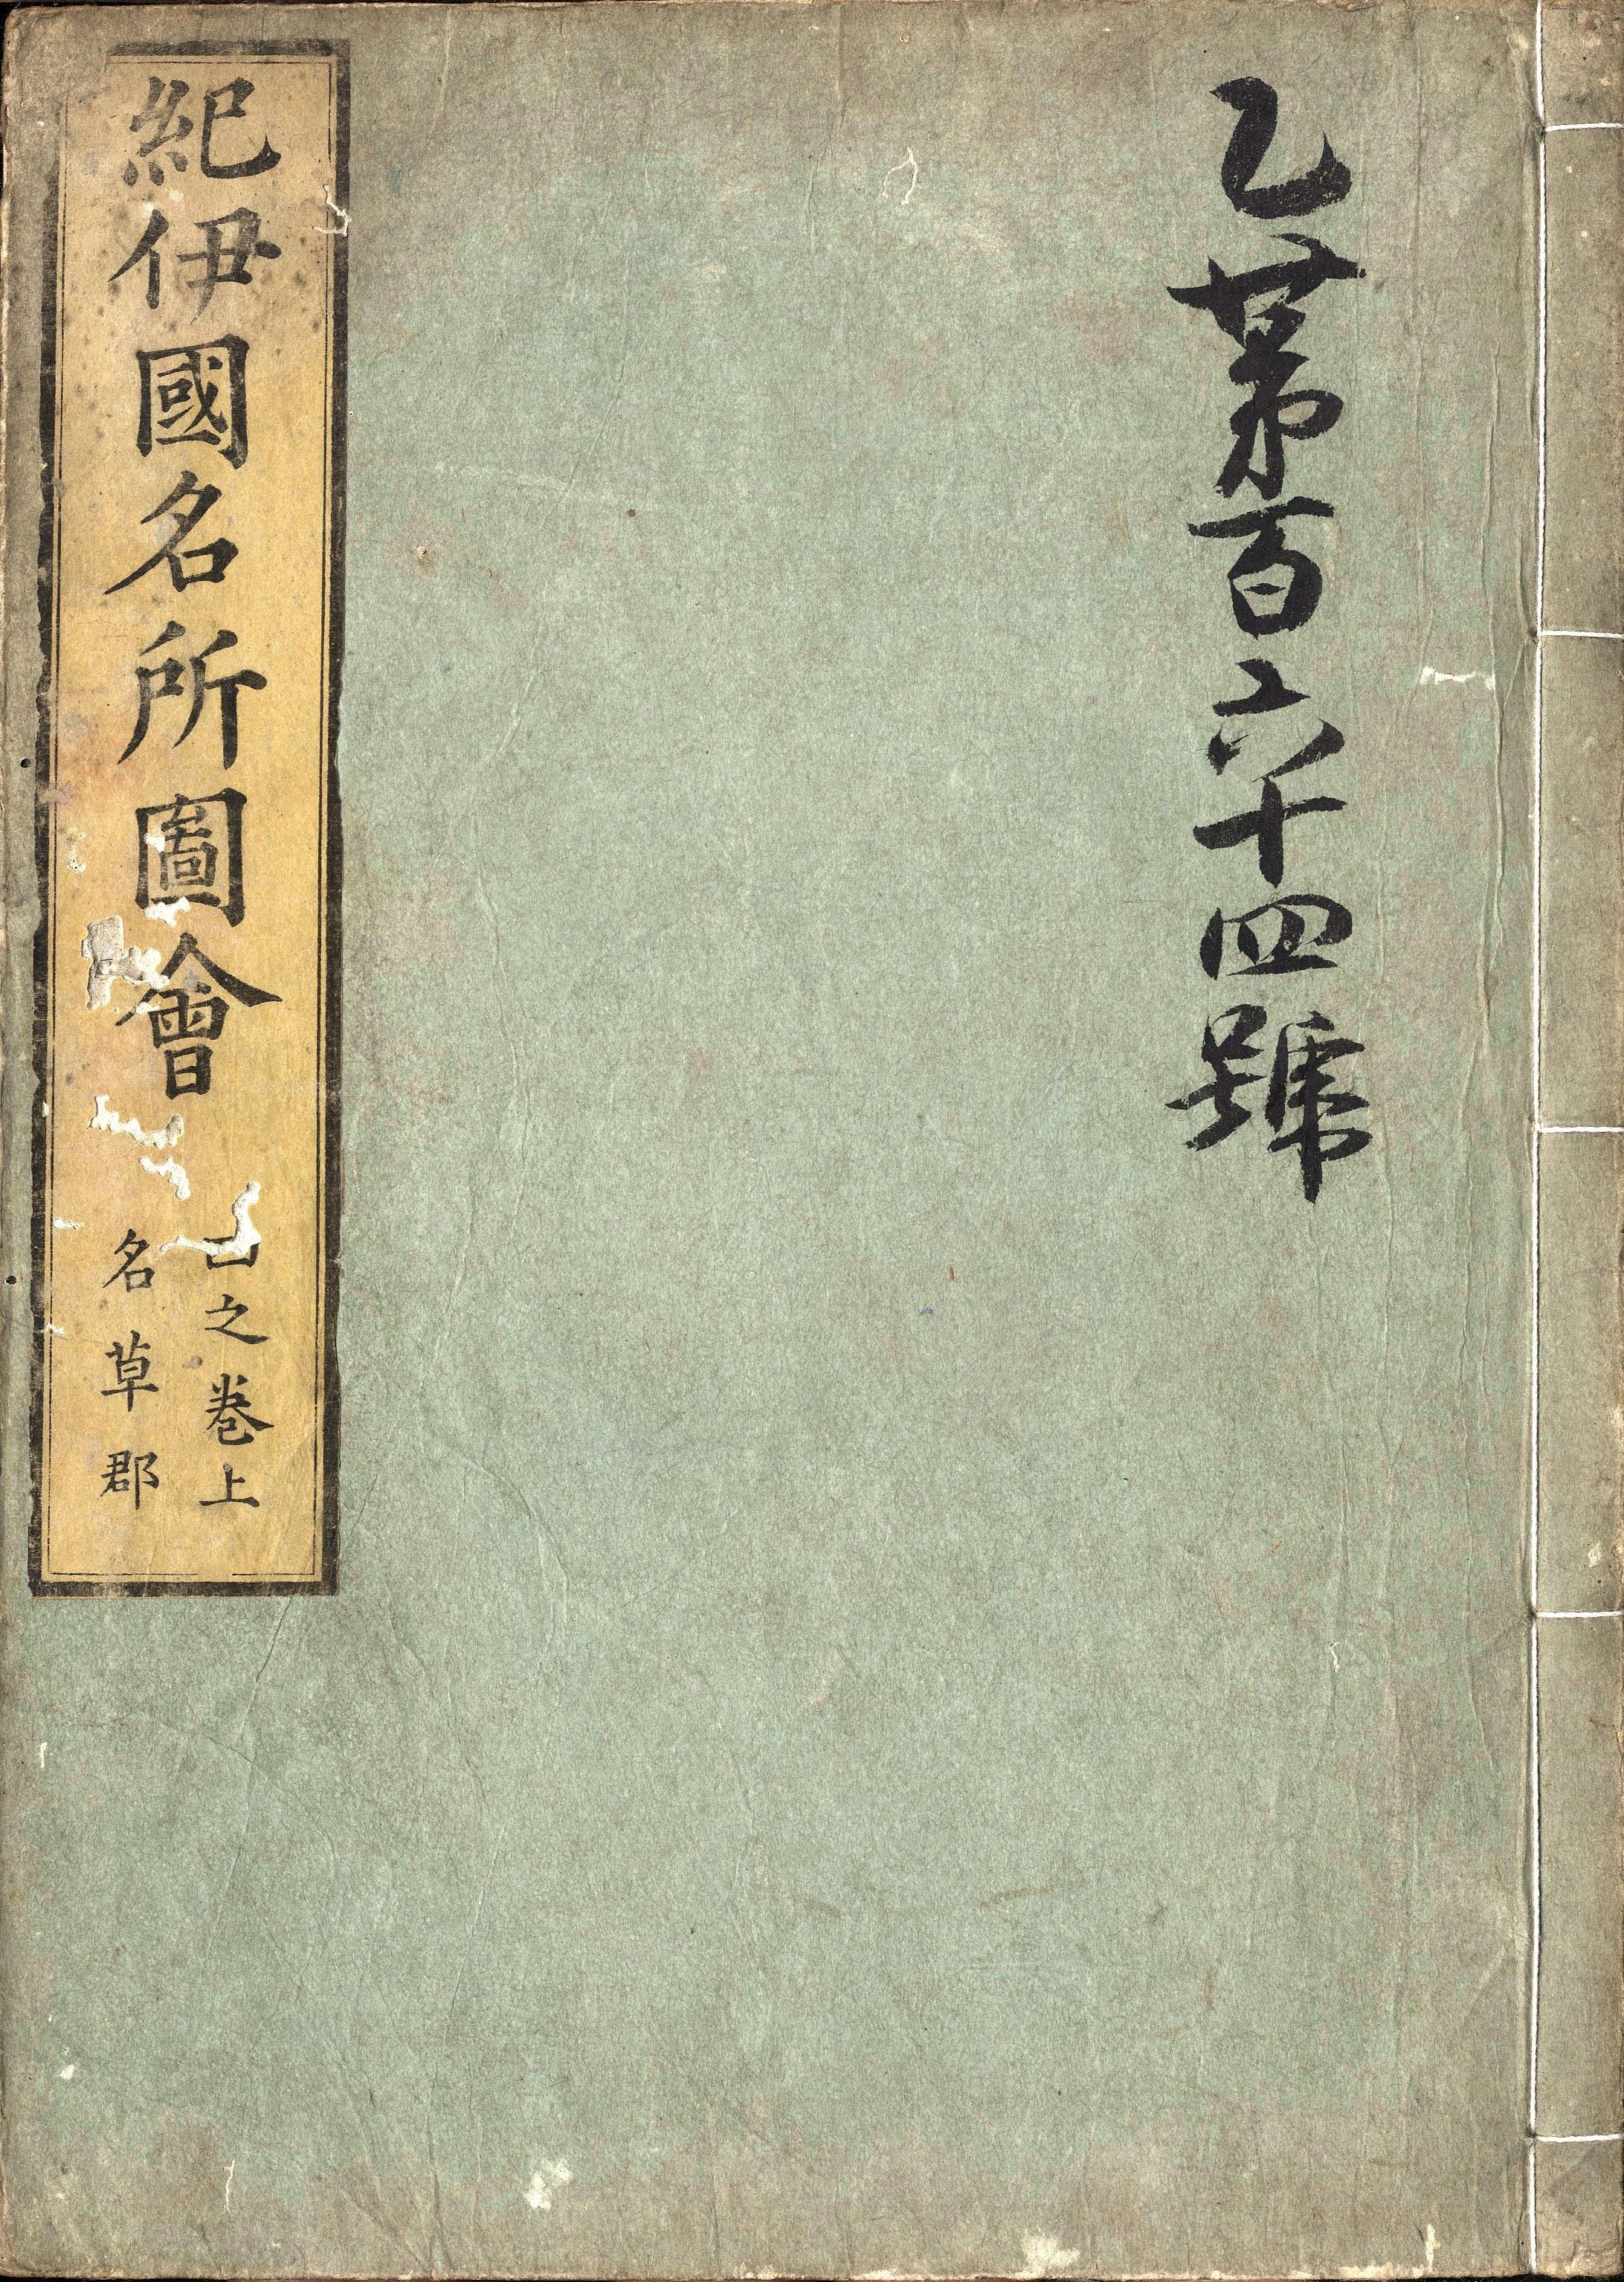 乙第百六十四號
紀伊國名所圖會
之巻上
名草郡